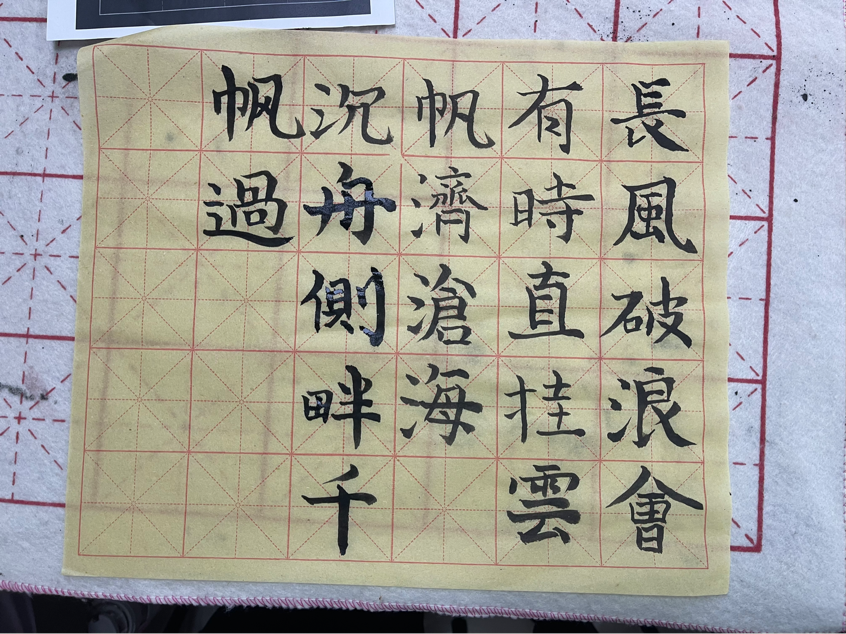 長風破浪會
有時直挂雲
帆濟滄海
沉舟側畔千
帆過